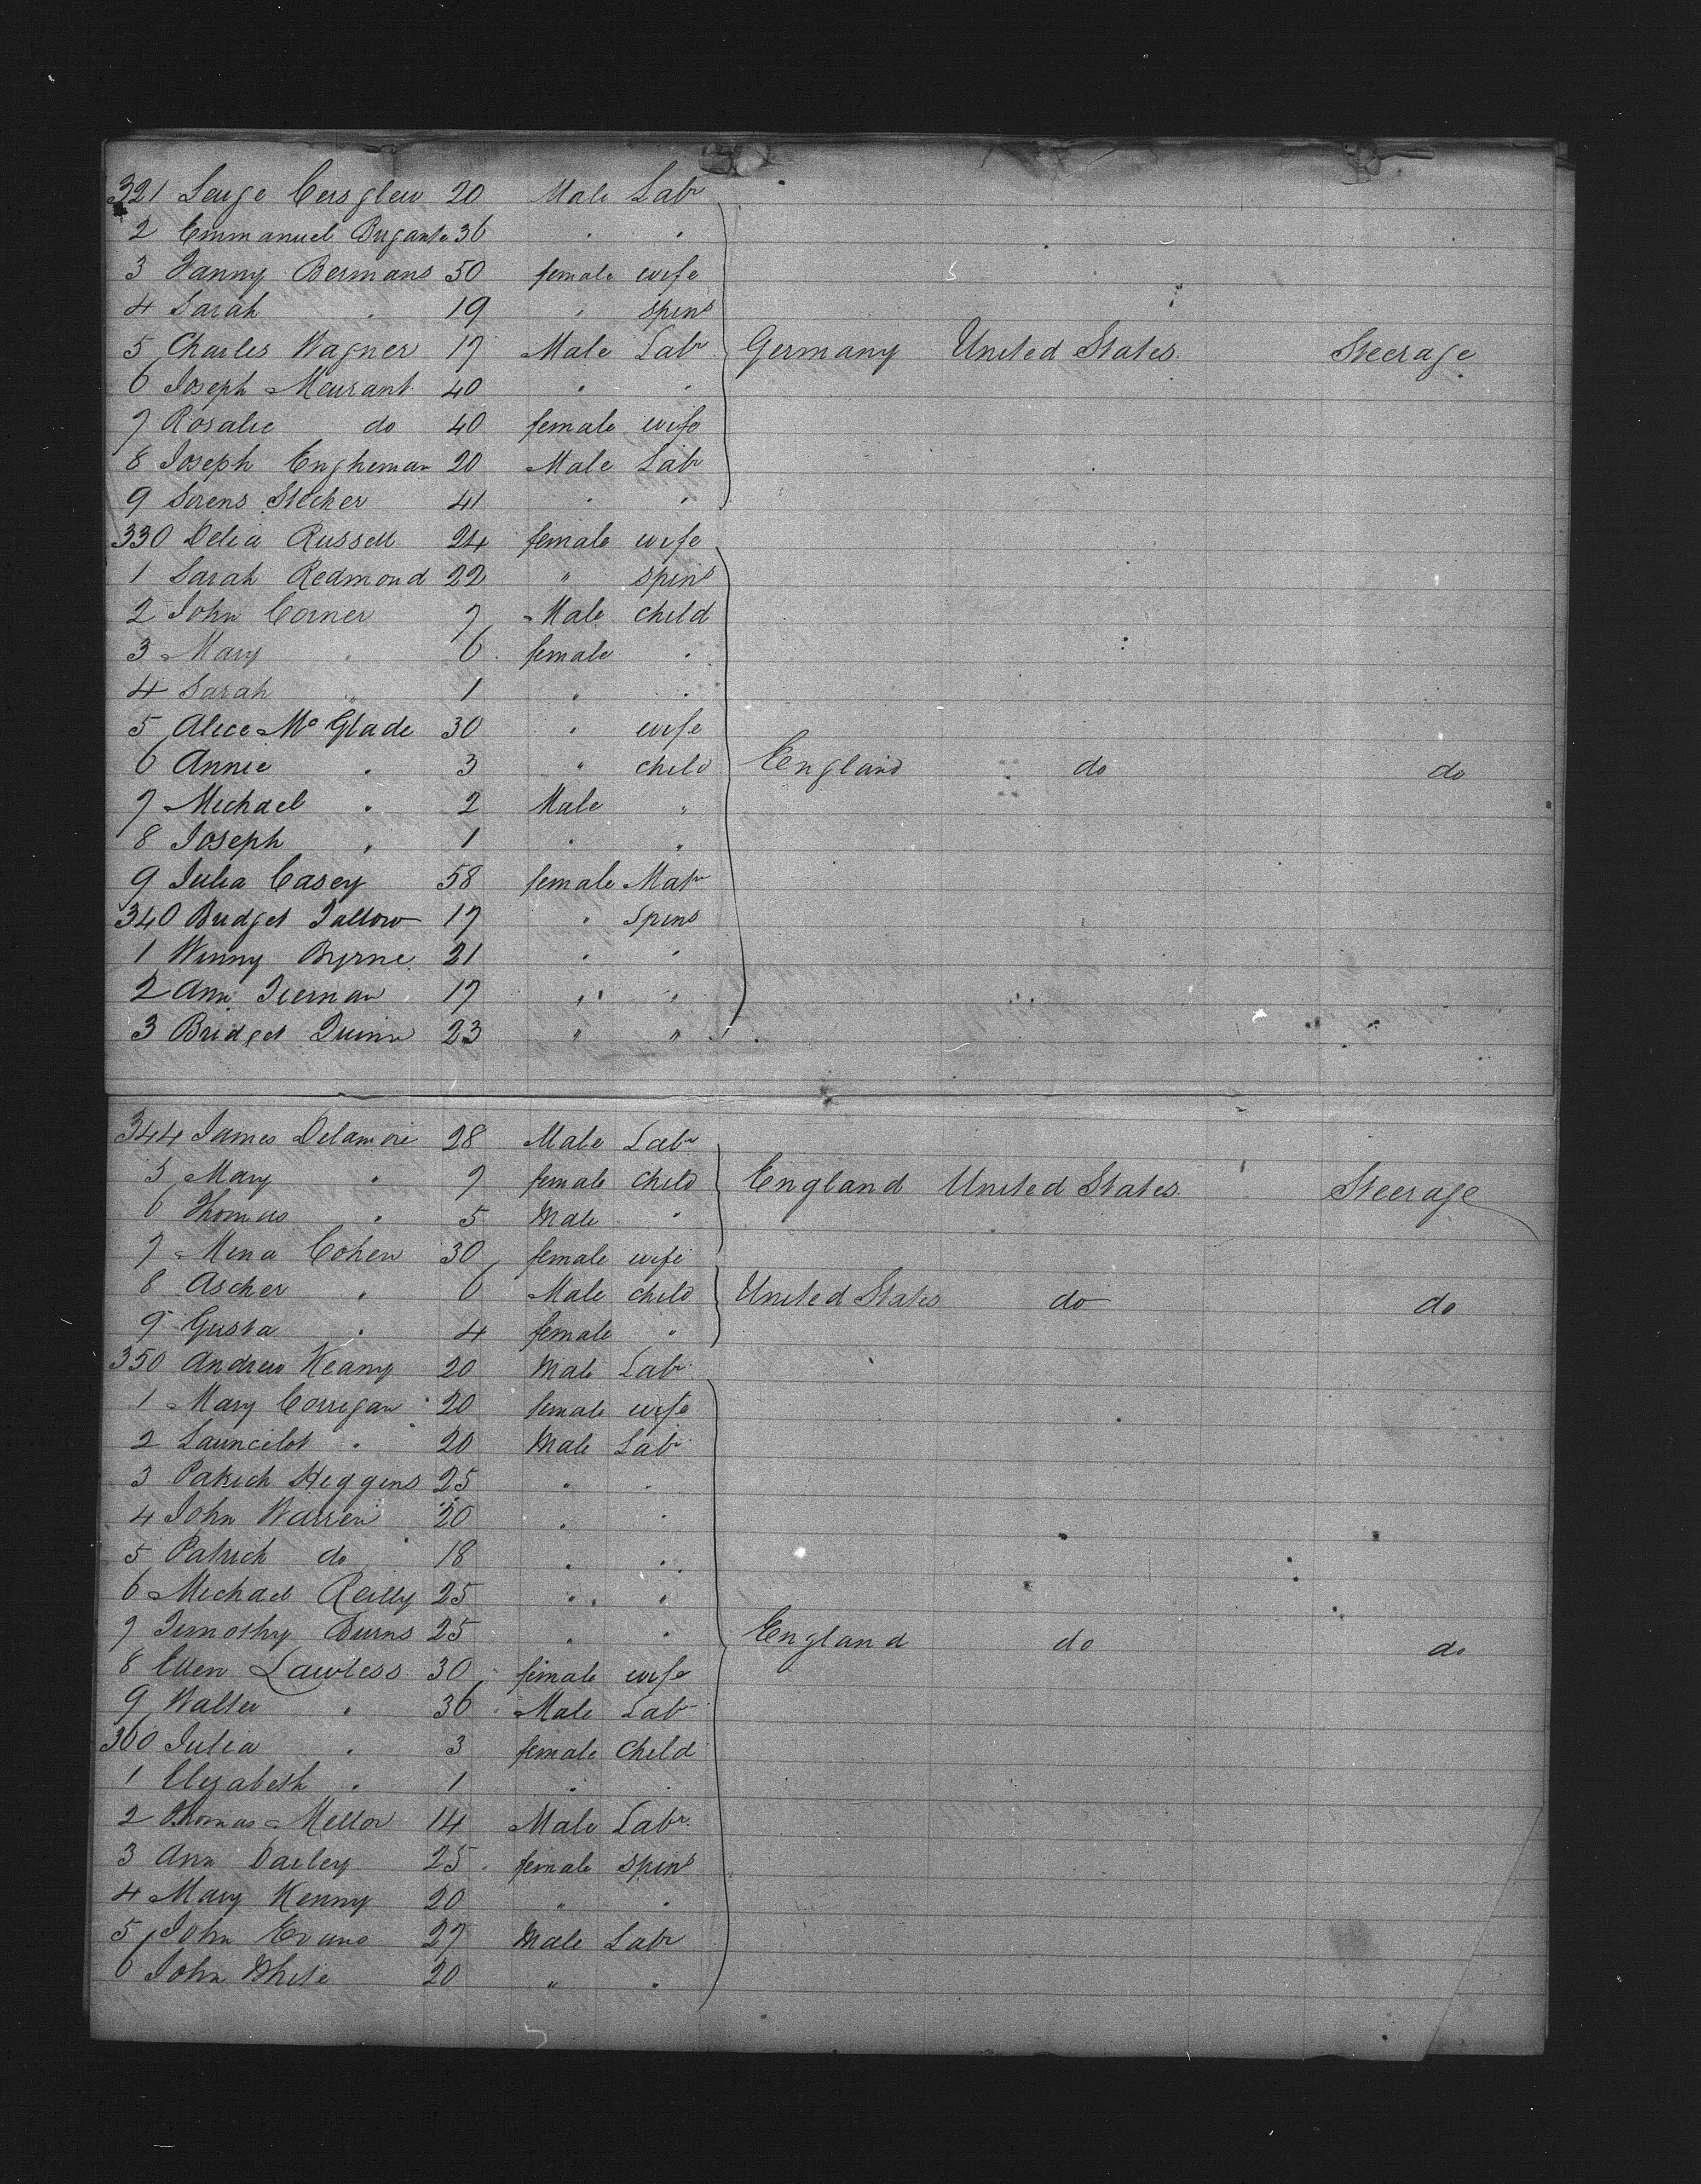 321 Cersglew 20 Male Labr
2 Emmanuel Bugante 36 " "
3 Fanny Bermans 50 female wife
4 Sarah " 19 " spins
5 Charles Wagner 17 Male Labr Germany United States Steerage
6 Joseph Meurant 40 " "
7 Rosalie do 40 female wife
8 Joseph Engheman 20 Male Labr
9 Sorens Stecker 41 " "
330 Delia Russell 24 female wife
1 Sarah Redmond 22 " spins
2 John Corner 7 Male child
3 Mary " 6 female "
4 Sarah " 1 " "
5 Alice Mc Glade 30 " wife
6 Annie " 3 " child England do do
7 Michael " 2 Male "
8 Joseph " 1 " "
9 Julia Casey 58 female Matr
340 Bridget Tallow 17 " Spins
1 Winny Byrne 21 " "
2 Ann Tiernan 17 " "
3 Bridget Quinn 23 " "
344 James Delamore 28 Male Labr
5 Mary " 7 female child England United States Steerage
6 Thomas " 5 Male "
7 Mena Cohen 30 female wife
8 Ascher " 6 Male child United States do do
9 Gusta " 4 female "
350 Andrew Keany 20 Male Labr
1 Mary Corrigan 20 female wife
2 Launcelot " 20 Male Labr
3 Patrick Higgins 25 " "
4 John Warren 20 " "
5 Patrick do 18 " "
6 Michael Reilly 25 " "
7 Timothy Burns 25 " " England do do
8 Ellen Lawless 30 female wife
9 Walter " 36 Male Labr
360 Julia " 3 female Child
1 Elizabeth " 1 " "
2 Thomas Mellor 14 Male Labr
3 Ann Darley 25 female spins
4 Mary Kenny 20 " "
5 John Evans 27 Male Labr
6 John White 20 " "